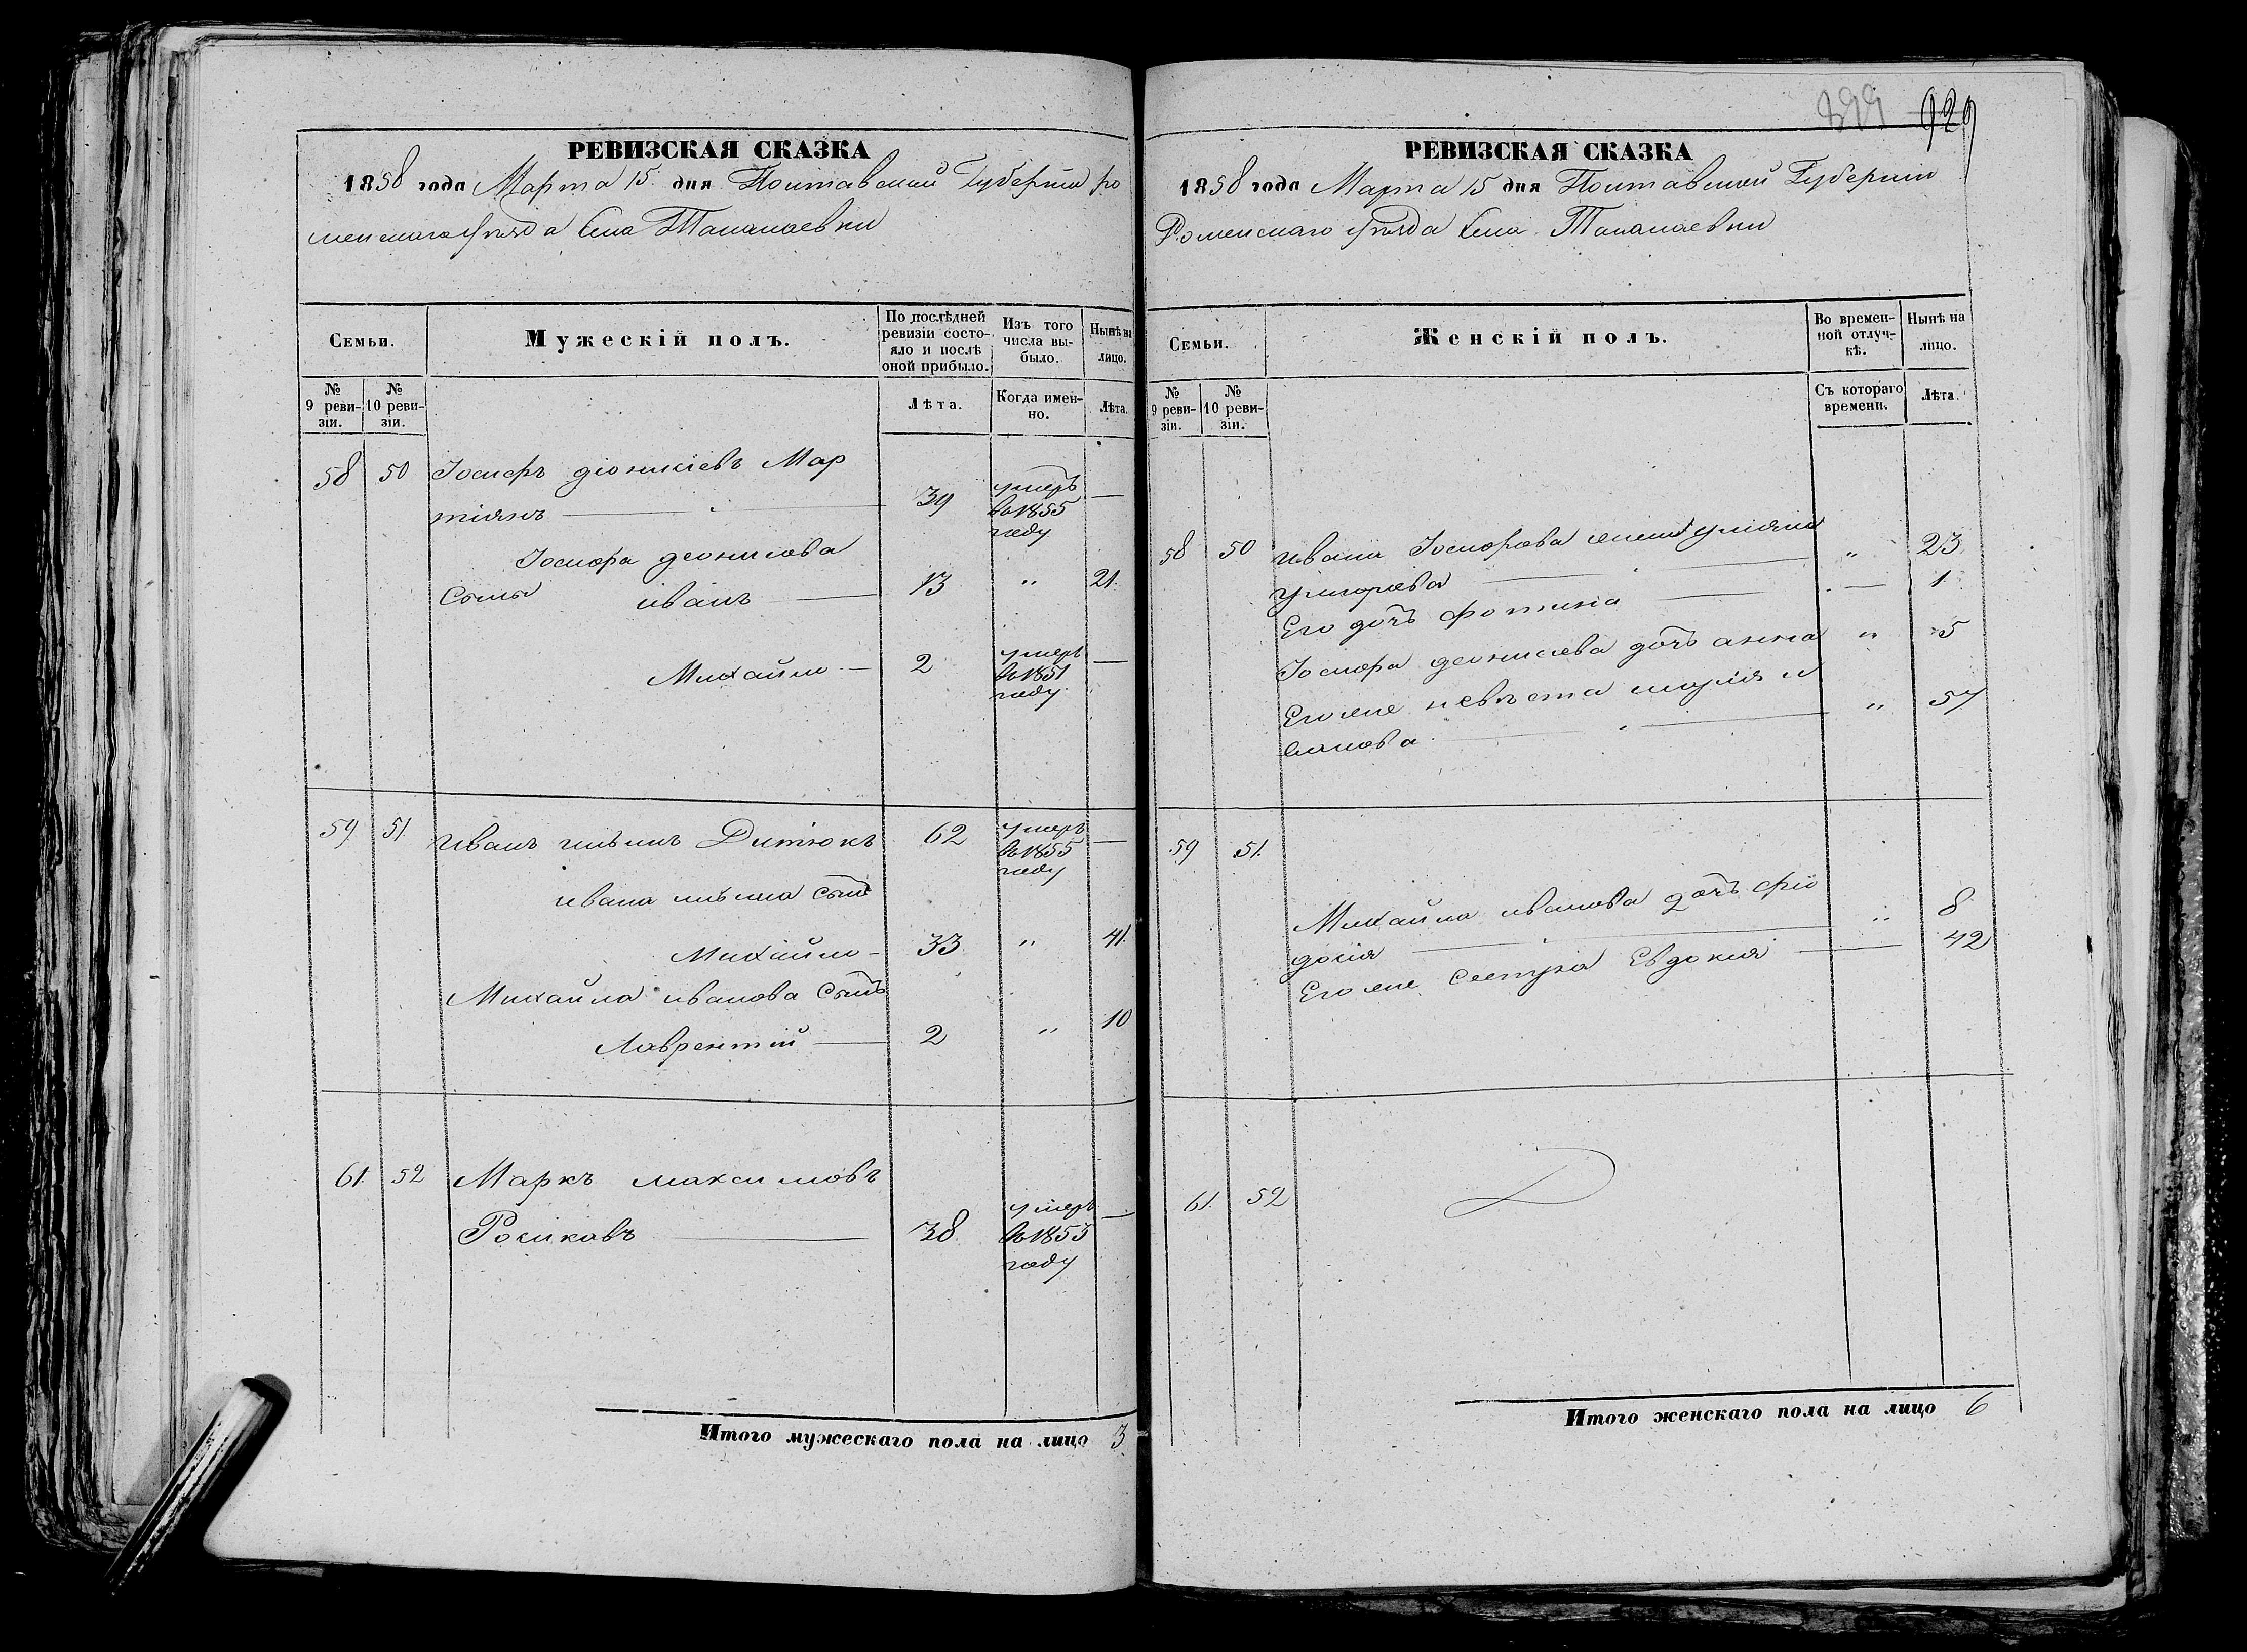 РЕВИЗСКАЯ СКАЗКА
1858 года Марта 15 дня Полтавской Губерніи Ро
менскаго уѣзда Села
Семьи.
Мужескій полъ.
По послѣдней ревизіи состояло и послѣ оной прибыло.
Изъ того числа выбыло.
Нынѣ на лицо.
№ 9 ревизіи.
№ 10 ревизіи.
Лѣта.
Когда именно.
Лѣта.
58 50 Іосифъ діонисіевъ Мар
тіянъ 39 умеръ в 1855 году —
Іосифа деонисова
Сыны иванъ 13 " 21.
Михайло — 2 умеръ в 1851 году —
59 51 иванъ ильинъ Дитюкъ 62 умеръ в 1855 году —
ивана ильина Сынъ
Михайло - 33 " 41.
Михайла иванова Сынъ
Лаврентій 2 " 10
61. 52 Маркъ максимовъ
38 умеръ в 1853 году —
Итого мужескаго пола на лицо 3
929
РЕВИЗСКАЯ СКАЗКА
1858 года Марта 15 дня Полтавской Губерніи
Роменскаго уѣзда Села
Семьи.
Женскій полъ.
Во временной отлучкѣ.
Нынѣ на лицо.
№ 9 ревизіи.
№ 10 ревизіи.
Съ котораго времени.
Лѣта.
58 50 ивана Іосифова жена
григорьева " 23
Его дочь фотинія — 1
Іосифа деонисіева дочь анна " 5
Его же невѣста марія и
ванова " 57
59 51.
Михайла иванова дочь фіо
досія " 8
Его же сестра Евдокія — 42
61. 52
Итого женскаго пола на лицо 6